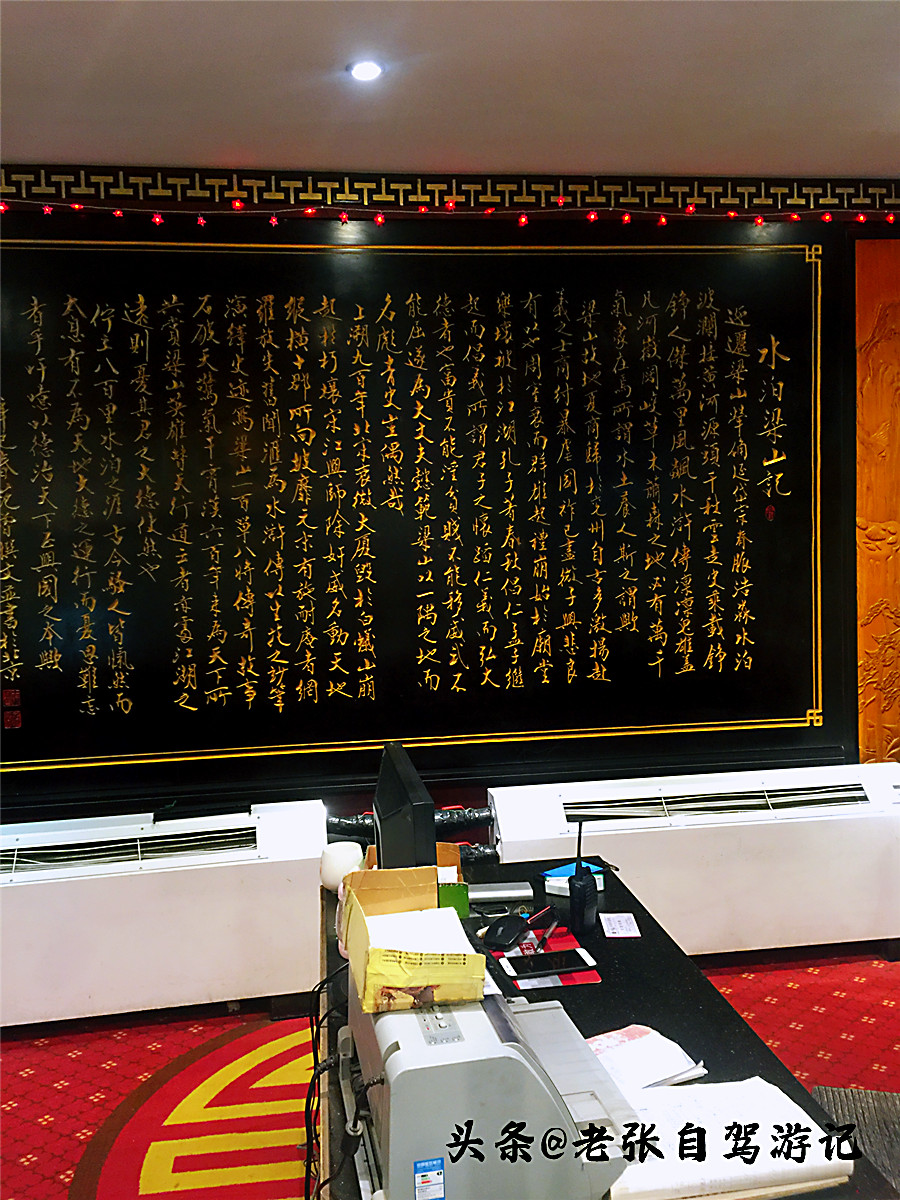 水泊梁山記
迤邐梁山 角延岱宗脊脉浩淼水泊
波瀾接黄河源頭千秋雲走史乘載錚
錚人傑萬里風飆水滸傳凛凛英雄盖
凡河嶽關岐草木蕭森之地必有萬千
氣象在焉所謂水土養人斯之謂歟
梁山故地夏商歸於兖州自古多激揚赴
義之士商紂暴虐國祚已盡微子興悲良
有以也周室衰而群雄起禮崩始於廟堂
樂壞被於江湖孔子著春秋倡仁孟子繼
起而倡義所謂君子之懷蹈仁義而弘大
德者也富貴不能淫貧賤不能移威武不
能屈遂為大丈夫懿範梁山以一隅之地而
名彪青史豈偶然哉
上溯九百年北宋衰微大廈毁於白蟻山崩
起於朽壤宋江興師除奸威名動天地
縱横十郡所向披靡元末有施耐庵者網
羅放失舊聞滙為水滸傳以生花之妙筆
演繹史迹寫梁山一百单八將傳奇故事
石破天驚氣干霄漢六百年来為天下所
共賞梁山英雄替天行道 者 處江湖之
遠則憂其君之大德使然也
佇立八百里水泊之涯古今騷人皆愾然而
太息有不為天地大德之運行而憂思難忘
者乎吁嗟以德治天下正興國之本歟
撰文并書於北京
头条@老张自驾游记